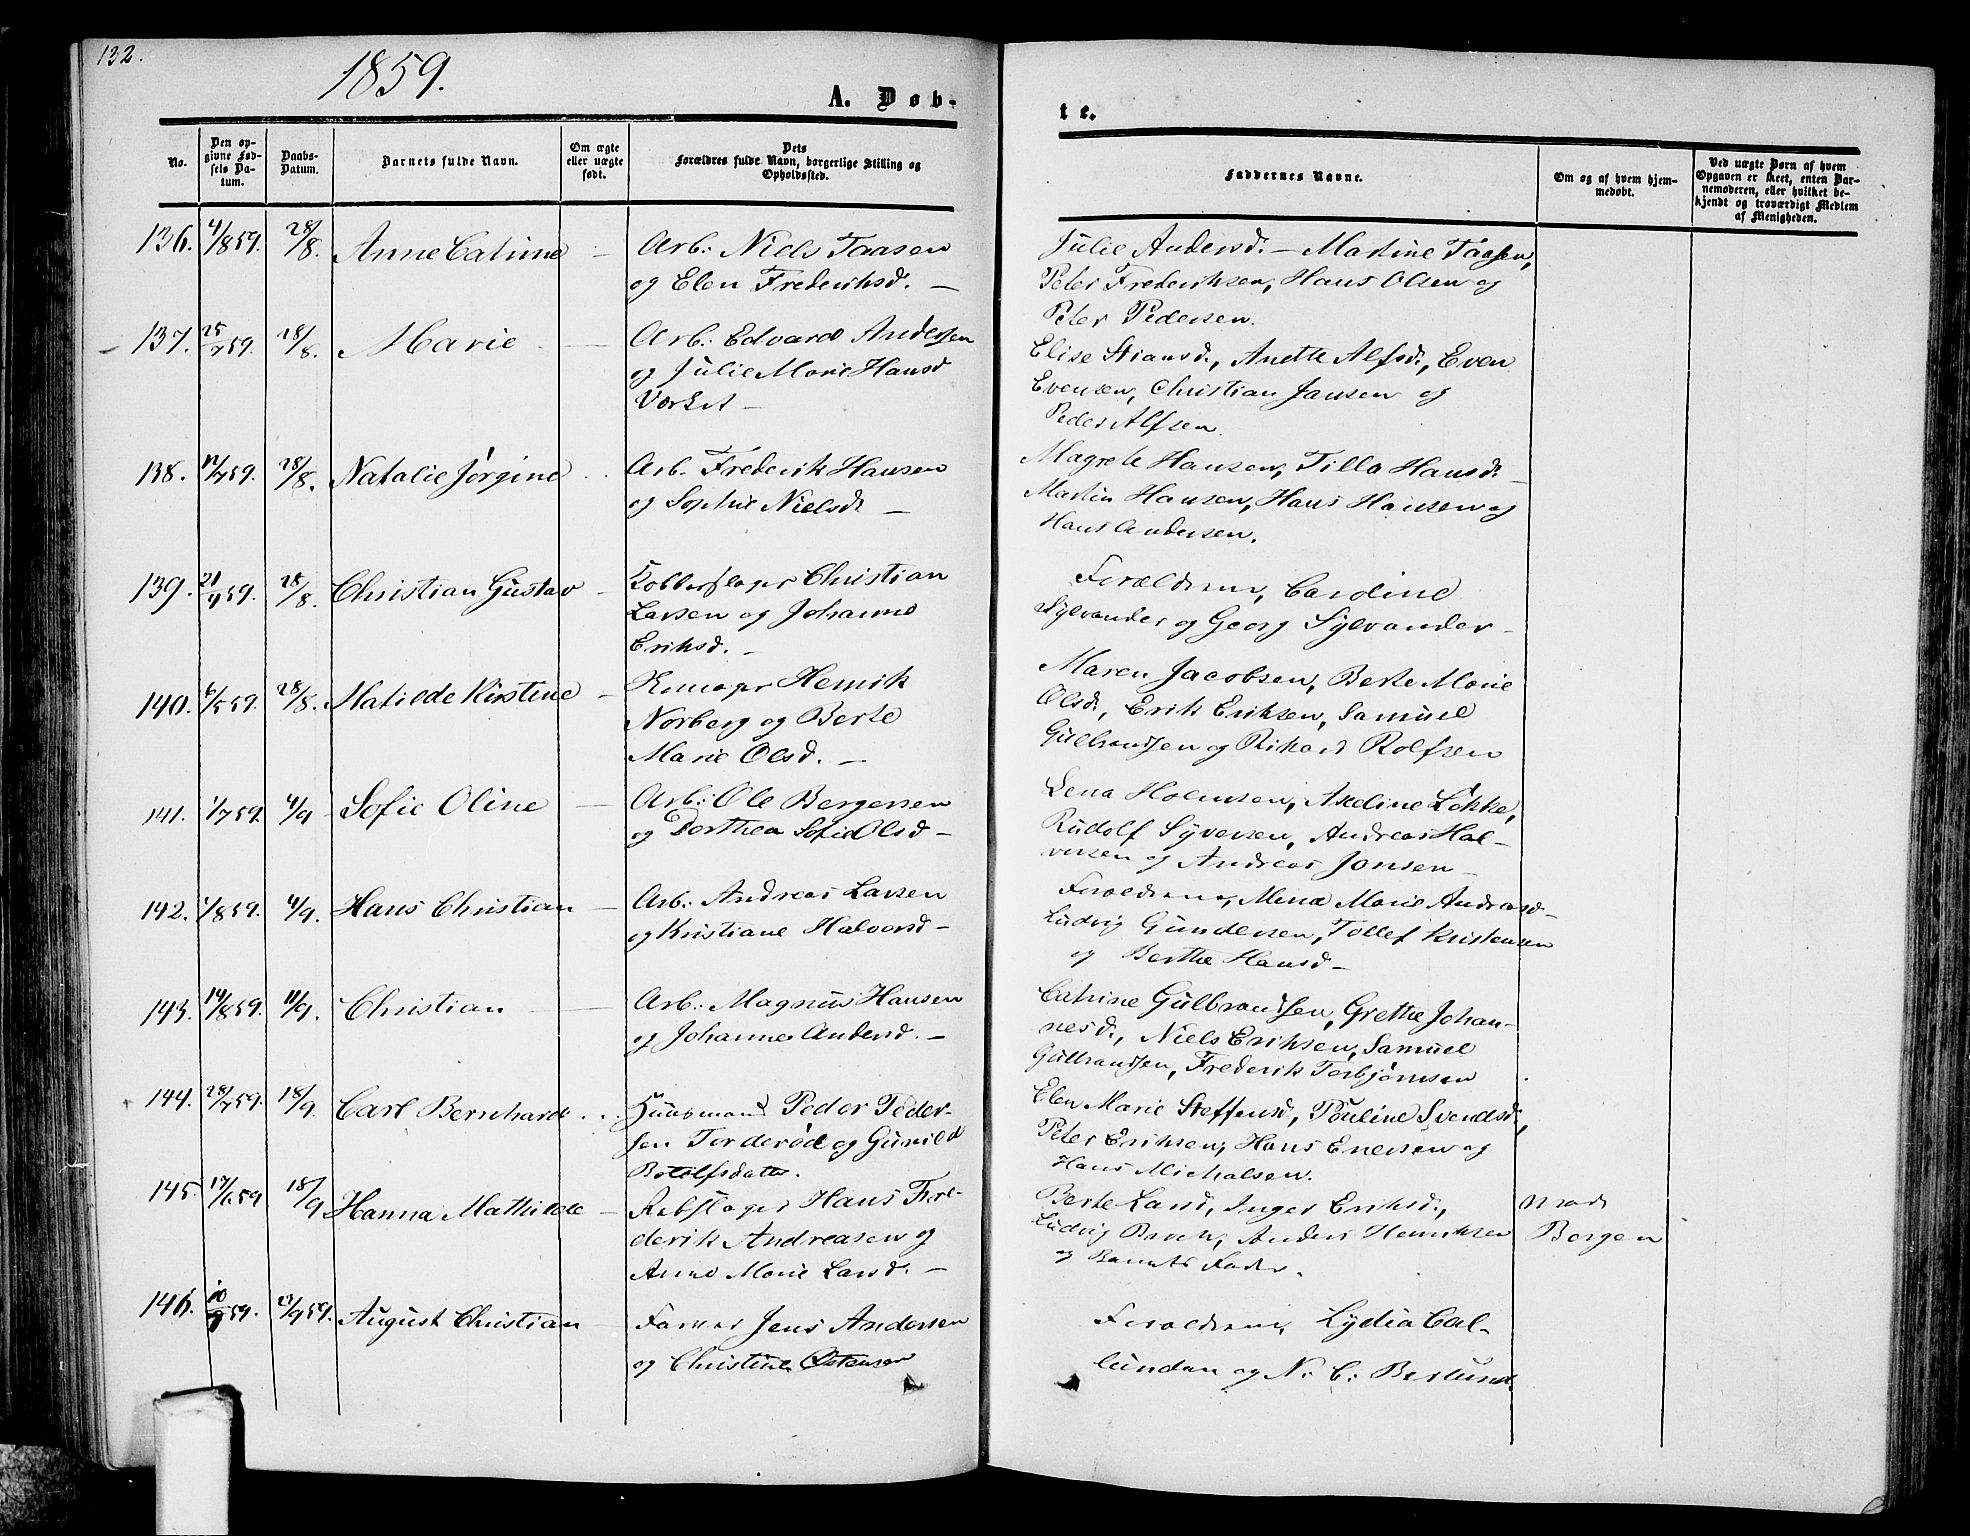 132.
1859.
A. Døb-
te.
No.
Den op-
givne Fød-
sels Da-
tum.
Daabs-
Datum.
Barnets fulde Navn.
Om ægte
eller uægte
født.
Dets
Forældres fulde Navn, borgerlige Stilling og
Opholdssted.
Faddernes Navne.
Om og af hvem hjem-
medøbt.
Ved uægte Børn af hvem
Opgaven er skeet, enten Bar-
nemoderen, eller hvilket be-
kjendt og troværdigt Medlem
af Menigheden.
136. 4/859. 28/8. Anne Catrine —
Arb: Niels Taasen
og Elen Frederiksd. —
Julie Andersd. — Martine Taasen,
Peter Frederiksen, Hans Olsen og
Peter Pedersen.
137. 25/759. 28/8. Marie —
Arb: Edvard Anderssen
og Julie Marie Hansd
Værket —
Elise Stiansd., Anette Alfsd., Even
Evensen, Christian Jansen og
Peder Alfsen.
138. 12/759. 28/8. Natalie Jørgine
Arb. Frederik Hansen
og Sophie Nielsd. —
Magrete Hansen, Tilla Hansd. —
Martin Hansen, Hans Hansen og
Hans Andersen.
139. 28/8. Christian Gustav —
Kobberslager Christian
Larsen og Johanne
Eriksd. —
Forældrene, Caroline
Sylvander og Georg Sylvander —
140. 6/559. 28/8. Matilde Kirstine —
Henrik
Norberg og Berte
Marie Olsd. —
Maren Jacobsen, Berte Marie
Olsd., Erik Eriksen, Samuel
Gulbrandsen og Rikard Rolfsen
141. 1/759. 4/9 Sofie Oline —
Arb: Ole Bergersen
og Dorthea Sofie Olsd —
Lena Holmsen, Axeline Løkke,
Rudolf Syversen, Andreas Hal-
vorsen og Andreas Jonsen —
142. 1/859. 4/9. Hans Christian —
Arb: Andreas Larsen
og Kristiane Halvorsd —
Forældrene, Mina Marie Andreasd —
Ludvig Gundersen, Tollef Kristensen
og Berthe Hansd —
143. 14/859. 11/9. Christian —
Arb: Magnus Hansen
og Johanne Andersd. —
Catrine Gulbrandsen, Grethe Johan-
nesd., Niels Eriksen, Samuel
Gulbrandsen, Frederik Torbjørnsen
144. 28/759. 18/9. Carl Bernhard
Huusmand Peder Peder-
sen Torderød og Gunild
Botolfsdatter.
Elen Marie Steffensd, Pouline Svendsd,
Peter Eriksen, Hans Enersen og
Hans Michalsen.
145. 17/659 18/9 Hanna Mathilde —
Rebslager Hans Fre-
derik Andreasen og
Anne Marie Larsd. —
Berte Larsd, Inger Eriksd.,
Ludvig Broch, Anders Henriksen
og Barnets Fader.
Mad
Borgen
146. 10/59. 959. August Christian —
Farver Jens Andersen
og Christine Østensen
Forældrene, Lydia Cal-
lundan og N. C. Berlund.